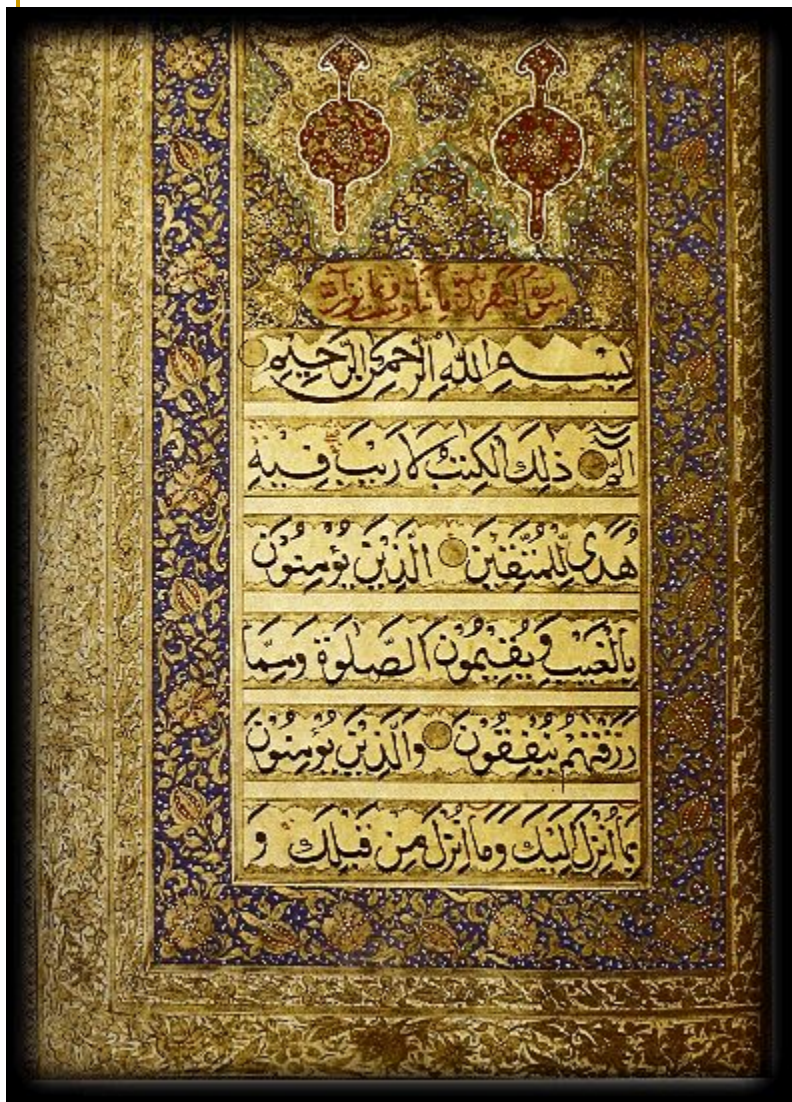 سورة البقرة
بِسْمِ اللّٰهِ الرَّحْمٰنِ الرَّحِيمِ
الٓمٓ ذٰلِكَ الْكِتٰبُ لَا رَيْبَ فِيْهِ
هُدًى لِّلْمُتَّقِيْنَ الَّذِيْنَ يُؤْمِنُوْنَ
بِالْغَيْبِ وَيُقِيْمُوْنَ الصَّلٰوةَ وَمِمَّا
رَزَقْنٰهُمْ يُنْفِقُوْنَ وَالَّذِيْنَ يُؤْمِنُوْنَ
بِمَا اُنْزِلَ اِلَيْكَ وَمَا اُنْزِلَ مِنْ قَبْلِكَ وَ